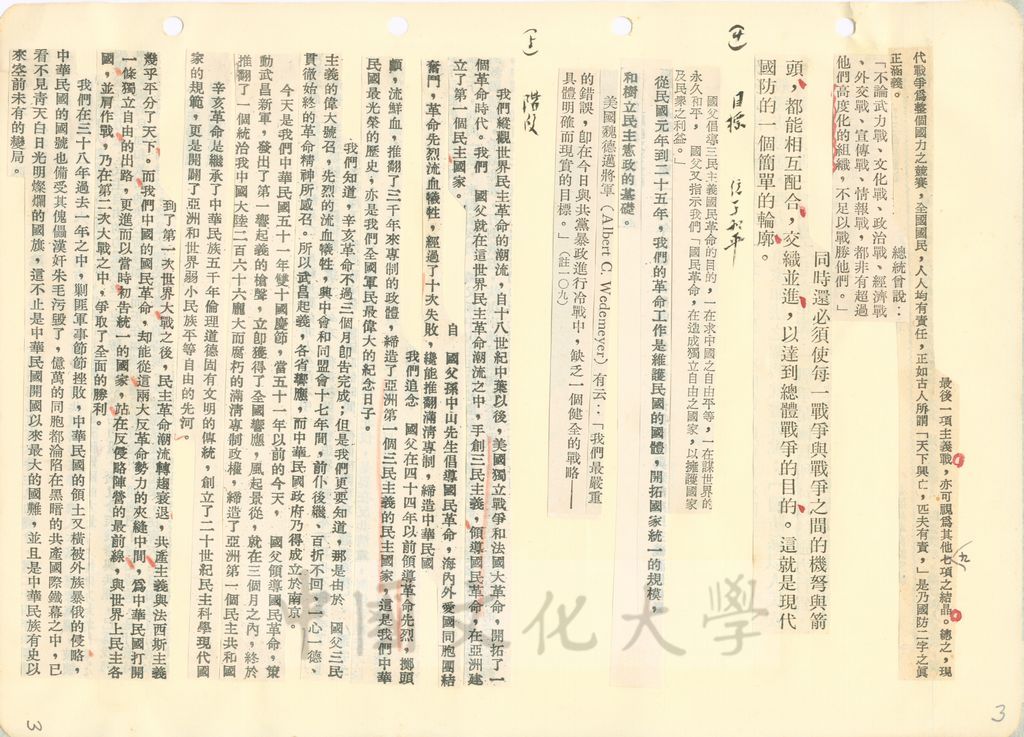 最後一項主義戰，亦可視爲其他七項之結晶。總之，現
九
代戰爭爲整個國力之競賽，全國國民，人人均有責任，正如古人所謂「天下興亡，匹夫有責，」是乃國防二字之眞
正涵義。
總統曾說：
「不論武力戰、文化戰、政治戰、經濟戰
、外交戰、宣傳戰、情報戰，都非有超過
他們高度化的組織，不足以戰勝他們。」
同時還必須使每一戰爭與戰爭之間的機弩與箭
頭，都能相互配合，交織並進，以達到總體戰爭的目的。這就是現代
國防的一個簡單的輪廓。
目標
國父倡導三民主義國民革命的目的，一在求中國之自由平等，一在謀世界的
永久和平，國父又指示我們「國民革命，在造成獨立自由之國家，以擁護國家
及民衆之利益。」
從民國元年到二十五年，我們的革命工作是維護民國的國體，開拓國家統一的規模，
和樹立民主憲政的基礎。
美國魏德邁將軍（Albert C. Wedemeyer）有云：「我們最嚴重
的錯誤，卽在今日與共黨暴政進行冷戰中，缺乏一個健全的戰略——
具體明確而現實的目標。」（註一〇九）
階段
我們縱觀世界民主革命的潮流，自十八世紀中葉以後，美國獨立戰爭和法國大革命，開拓了一
個革命時代。我們 國父就在這世界民主革命潮流之中，手創三民主義，領導國民革命，在亞洲建
立了第一個民主國家。
自 國父孫中山先生倡導國民革命，海內外愛國同胞團結
奮鬥，革命先烈流血犧牲，經過了十次失敗，纔能推翻滿清專制，締造中華民國
我們追念 國父在四十四年以前領導革命先烈，擲頭
顱，流鮮血，推翻了三千年來專制的政體，締造了亞洲第一個三民主義的民主國家，這是我們中華
民國最光榮的歷史，亦是我們全國軍民最偉大的紀念日子。
我們知道，辛亥革命不過三個月卽告完成；但是我們更要知道，那是由於 國父三民
主義的偉大號召，先烈的流血犧牲，興中會和同盟會十七年間，前仆後繼、百折不回、一心一德、
貫徹始終的革命精神所感召。所以武昌起義，各省響應，而中華民國政府乃得成立於南京。
今天是我們中華民國五十一年雙十國慶節，當五十一年以前的今天， 國父領導國民革命，策
動武昌新軍，發出了第一響起義的槍聲，立卽獲得了全國響應，風起景從，就在三個月之內，終於
推翻了一個統治我中國大陸二百六十六龐大而腐朽的滿淸專制政權，締造了亞洲第一個民主共和國
辛亥革命是繼承了中華民族五千年倫理道德固有文明的傳統，創立了二十世紀民主科學現代國
家的規範，更是開闢了亞洲和世界弱小民族平等自由的先河。
到了第一次世界大戰之後，民主革命潮流轉趨衰退，共產主義與法西斯主義
幾乎平分了天下。而我們中國的國民革命，却能從這兩大反革命勢力的夾縫中間，爲中華民國打開
一條獨立自由的出路，更進而以當時初告統一的國家，站在反侵略陣營的最前線，與世界上民主各
國，並肩作戰，乃在第二次大戰之中，爭取了全面的勝利。
我們在三十八年過去一年之中，剿匪軍事節節挫敗，中華民國的領土又橫被外族暴俄的侵略，
中華民國的國號也備受其傀儡漢奸朱毛污衊了，億萬的同胞都淪陷在黑暗的共產國際鐵幕之中，已
看不見靑天白日光明燦爛的國旗，這不止是中華民國開國以來最大的國難，並且是中華民族有史以
來空前未有的變局。
中國文化大學
3
3